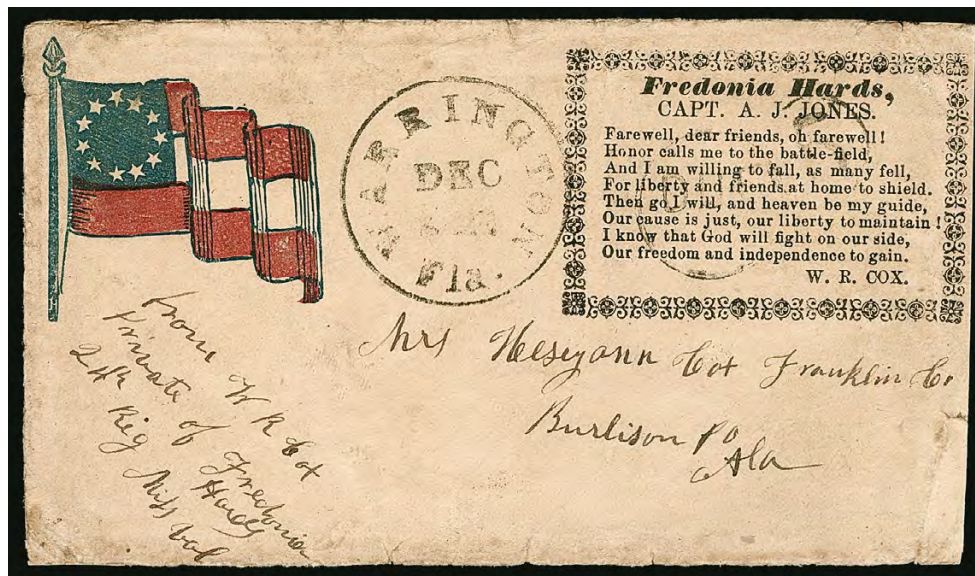 WARRINGTON
DEC
Fla.
Fredonia Hards,
CAPT. A. J. JONES.
Farewell, dear friends, oh farewell!
Honor calls me to the battle-field,
And I am willing to fall, as many fell,
For liberty and friends at home to shield.
Then go I will, and heaven be my guide,
Our cause is just, our liberty to maintain!
I know that God will fight on our side,
Our freedom and independence to gain.
W. R. COX.
Mrs Cox Franklin Co
Burlison PO
Ala
from W R Cox
Private of Fredonia
Hards
24th Reg Miss Vol